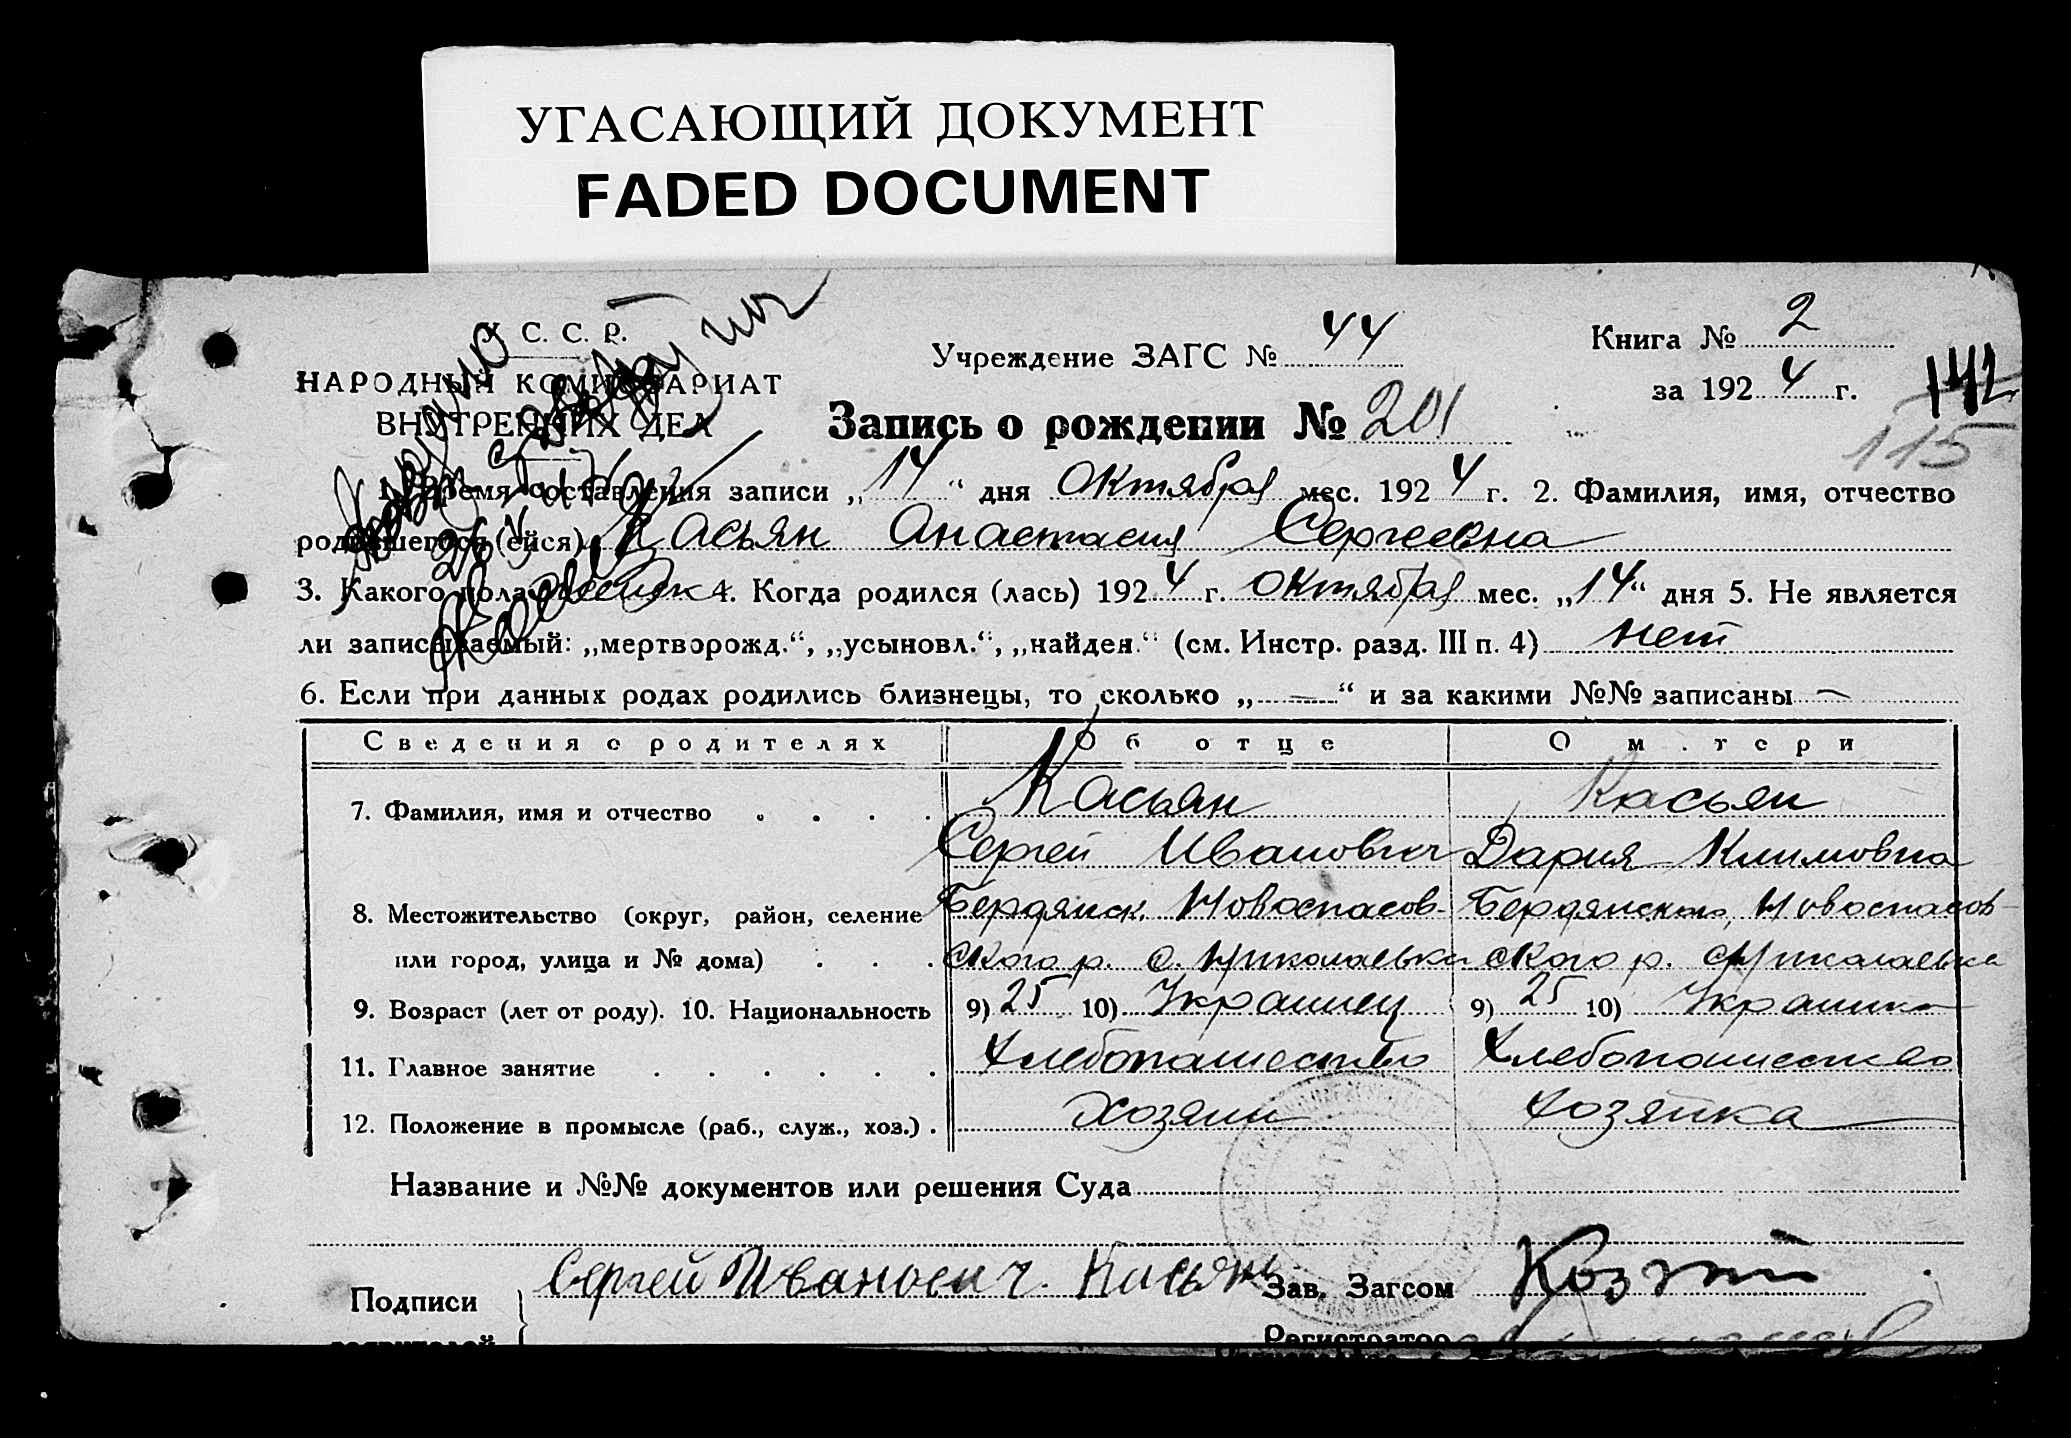 УГАСАЮЩИЙ ДОКУМЕНТ
FADED DOCUMENT
У. С. С. Р.
НАРОДНЫЙ КОМИССАРИАТ
ВНУТРЕННИХ ДЕЛ
Учреждение ЗАГС № 44
Книга № 2
за 1924 г.
142
115
Запись о рождении № 201
1. Время составления записи „14“ дня Октября мес. 1924 г. 2. Фамилия, имя, отчество
родившегося (ейся) Касьян Анастасия Сергеевна
3. Какого пола женск 4. Когда родился (лась) 1924 г. Октября мес. „14“ дня 5. Не является
ли записываемый: „мертворожд.“, „усыновл.“, „найден.“ (см. Инстр. разд. III п. 4) нет
6. Если при данных родах родились близнецы, то сколько „—“ и за какими №№ записаны —
Сведения о родителях Об отце О матери
7. Фамилия, имя и отчество . . . . Касьян Касьян
Сергей Иванович Дария Климовна
8. Местожительство (округ, район, селение Бердянск. Новоспасов- Бердянского, Новоспасов-
или город, улица и № дома) . . . ского р. с. Николаевка ского р. с. Николаевка
9. Возраст (лет от роду). 10. Национальность 9) 25 10) Украинец 9) 25 10) Украинка
11. Главное занятие . . . . . . Хлебопашество Хлебопашество
12. Положение в промысле (раб., служ., хоз.) . Хозяин Хозяйка
Название и №№ документов или решения Суда
Подписи Сергей Иванович. Касьян Зав. Загсом
заявителей Регистратор